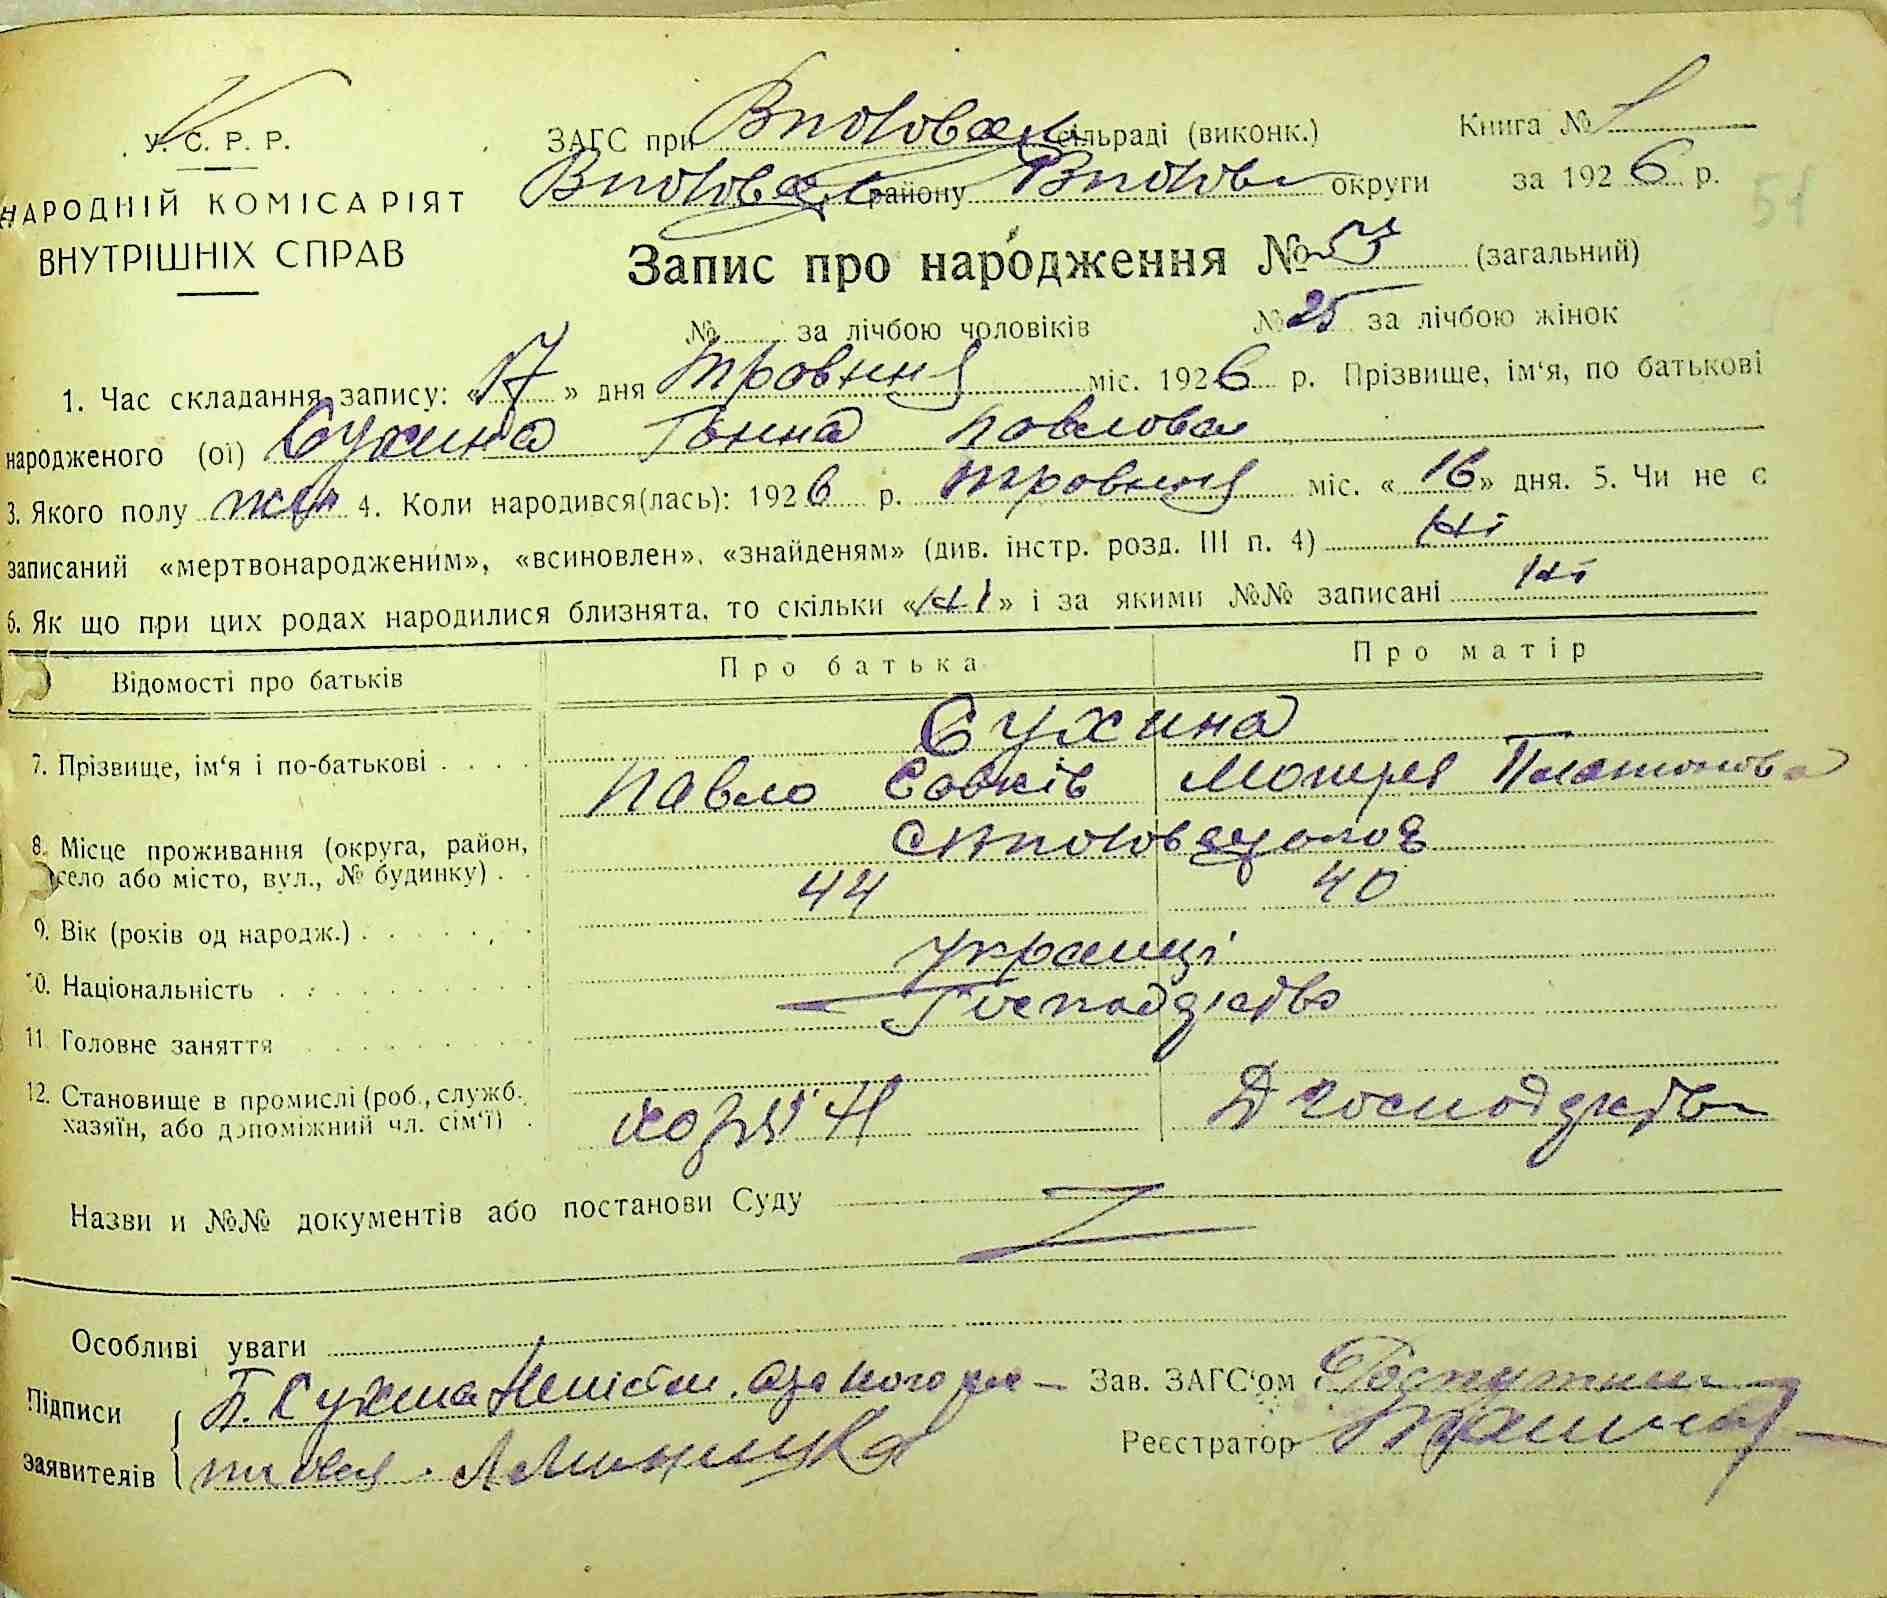 У. С. Р. Р.
НАРОДНІЙ КОМІСАРІЯТ
ВНУТРІШНІХ СПРАВ
ЗАГС при сільраді (виконк.)
району округи
Книга № 1
за 1926 р.
51
Запис про народження № 53 (загальний)
№ за лічбою чоловіків № 25 за лічбою жінок
1. Час складання запису: «17» дня травня міс. 1926 р. Прізвище, ім‘я, по батькові
народженого (ої) Сухина Ганна Павлова
3. Якого полу жін 4. Коли народився(лась): 1926 р. травня міс. «16» дня. 5. Чи не є
записаний «мертвонародженим», «всиновлен», «знайденям» (див. інстр. розд. III п. 4) Ні
6. Як що при цих родах народилися близнята, то скільки «Ні» і за якими №№ записані Ні
Відомості про батьків Про батька Про матір
Сухина
7. Прізвище, ім‘я і по-батькові Павло Савків Мотря Платонова
8. Місце проживання (округа, район,
село або місто, вул., № будинку)
9. Вік (років од народж.) 44 40
10. Національність Українці
11. Головне заняття Господарство
12. Становище в промислі (роб., служб.,
хазяїн, або допоміжний чл. сім‘ї) хазяїн Д господарстві
Назви и №№ документів або постанови Суду
Особливі уваги
Підписи
заявителів
П. Сухина
Зав. ЗАГС‘ом
Реєстратор